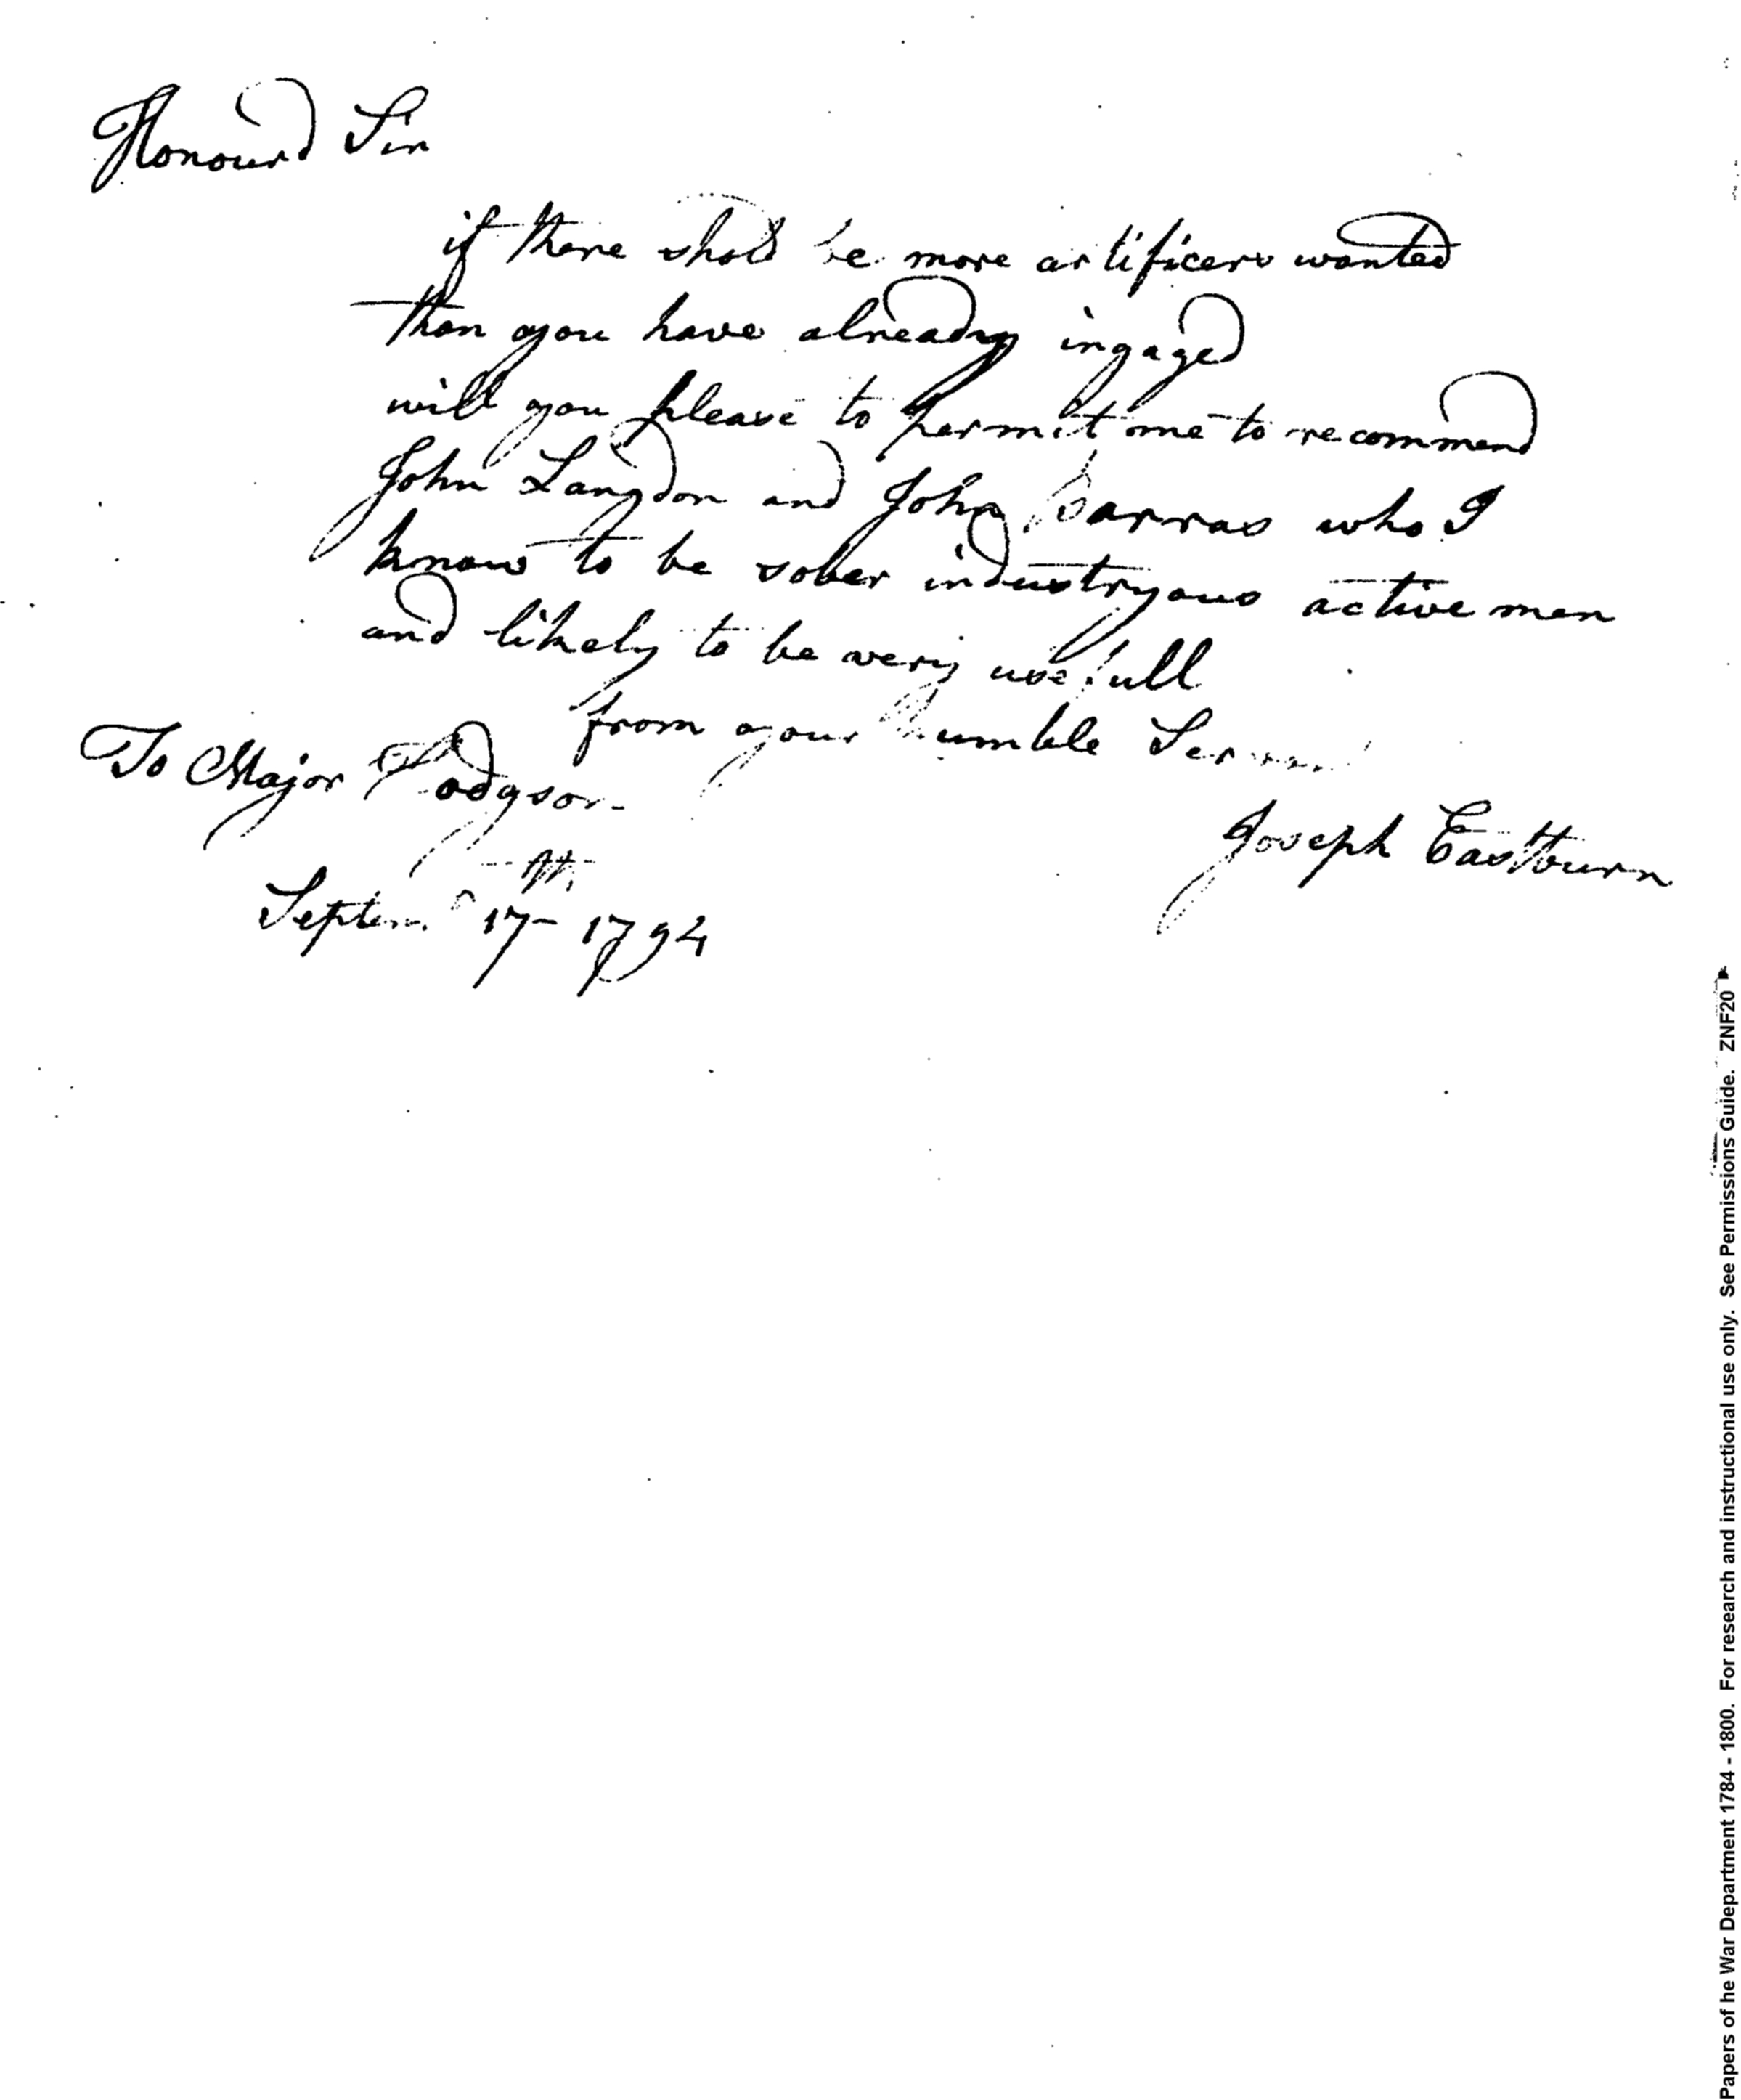 Honourd Sir
if there shold be more artificers wanted
than you have already ingaged
will you please to permit me to recommend
John Langdon and John Barras who I
know to be sober industryous active men
and likely to be very usefull
from your humble Servant
To Major Hodgson
Joseph Eastburn
Septem.r 17th 1794
Papers of he War Department 1784 - 1800. For research and instructional use only. See Permissions Guide. ZNF20